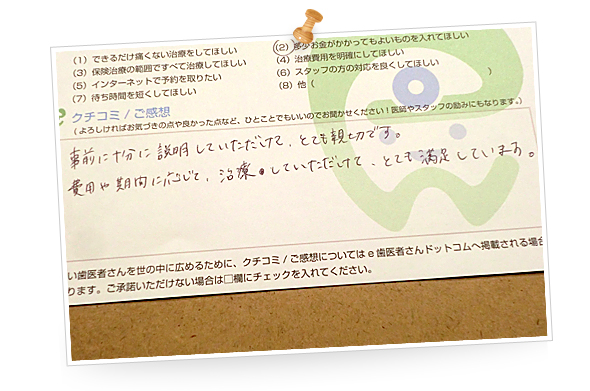 (1) できるだけ痛くない治療をしてほしい
(2) 多少お金がかかってもよいものを入れてほしい
(3) 保険治療の範囲ですべて治療してほしい
(4) 治療費用を明確にしてほしい
(5) インターネットで予約を取りたい
(6) スタッフの方の対応を良くしてほしい
(7) 待ち時間を短くしてほしい
(8) 他 ( )
クチコミ / ご感想
( よろしければお気づきの点や良かった点など、ひとことでもいいのでお聞かせください！医師やスタッフの励みにもなります。)
事前に十分に説明していただけて、とても親切です。
費用や期間に応じて、治療していただけて、とても満足しています。
い歯医者さんを世の中に広めるために、クチコミ / ご感想についてはe歯医者さんドットコムへ掲載される場合
ります。ご承諾いただけない場合は□欄にチェックを入れてください。